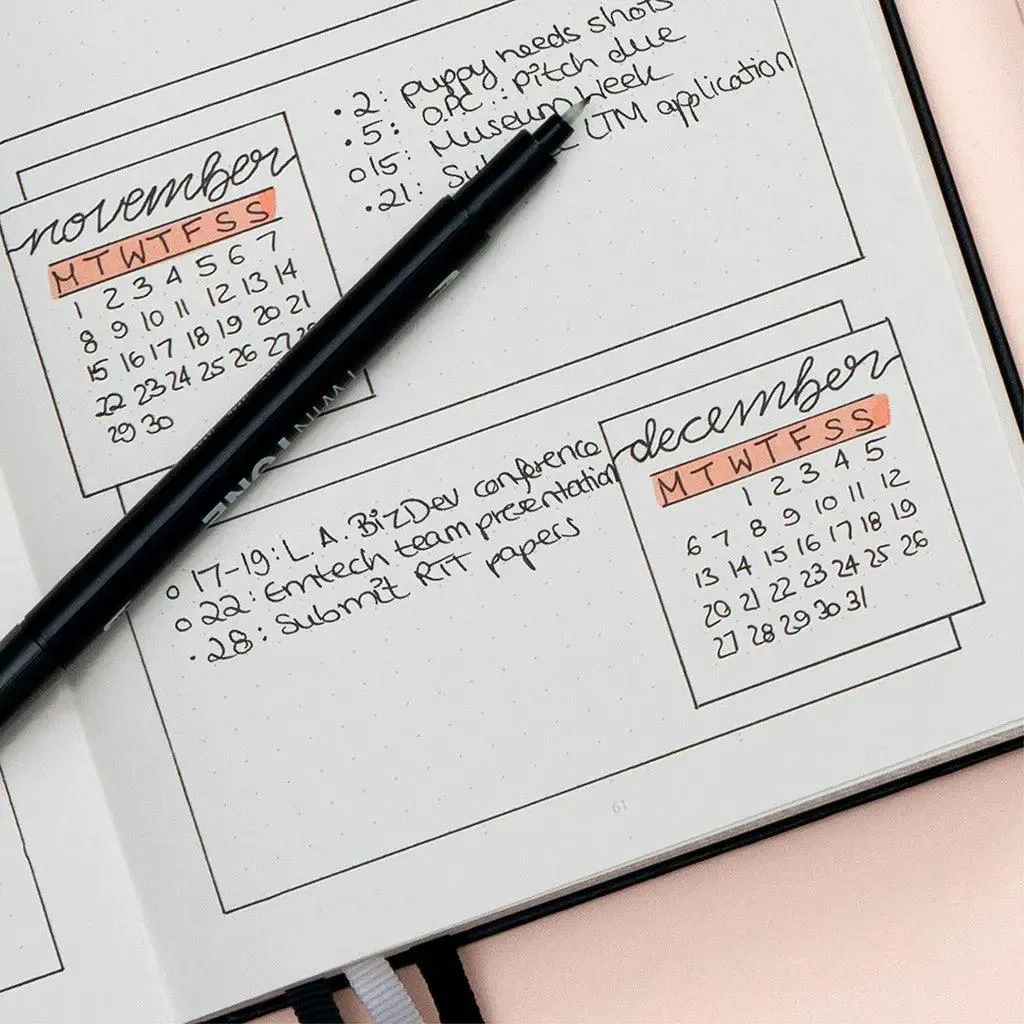 • 2: puppy needs shots
• 5: OPC: pitch due
o 15: Museum Week
• 21: LTM application
november
M T W T F S S
1 2 3 4 5 6 7
8 9 10 11 12 13 14
15 16 17 18 19 20 21
22 23 24 25 26 27
29 30
december
M T W T F S S
1 2 3 4 5
6 7 8 9 10 11 12
13 14 15 16 17 18 19
20 21 22 23 24 25 26
27 28 29 30 31
o 17-19: L.A. BizDev conference
o 22: Emtech team presentation
• 28: Submit RIT papers
61
TWIN TONE